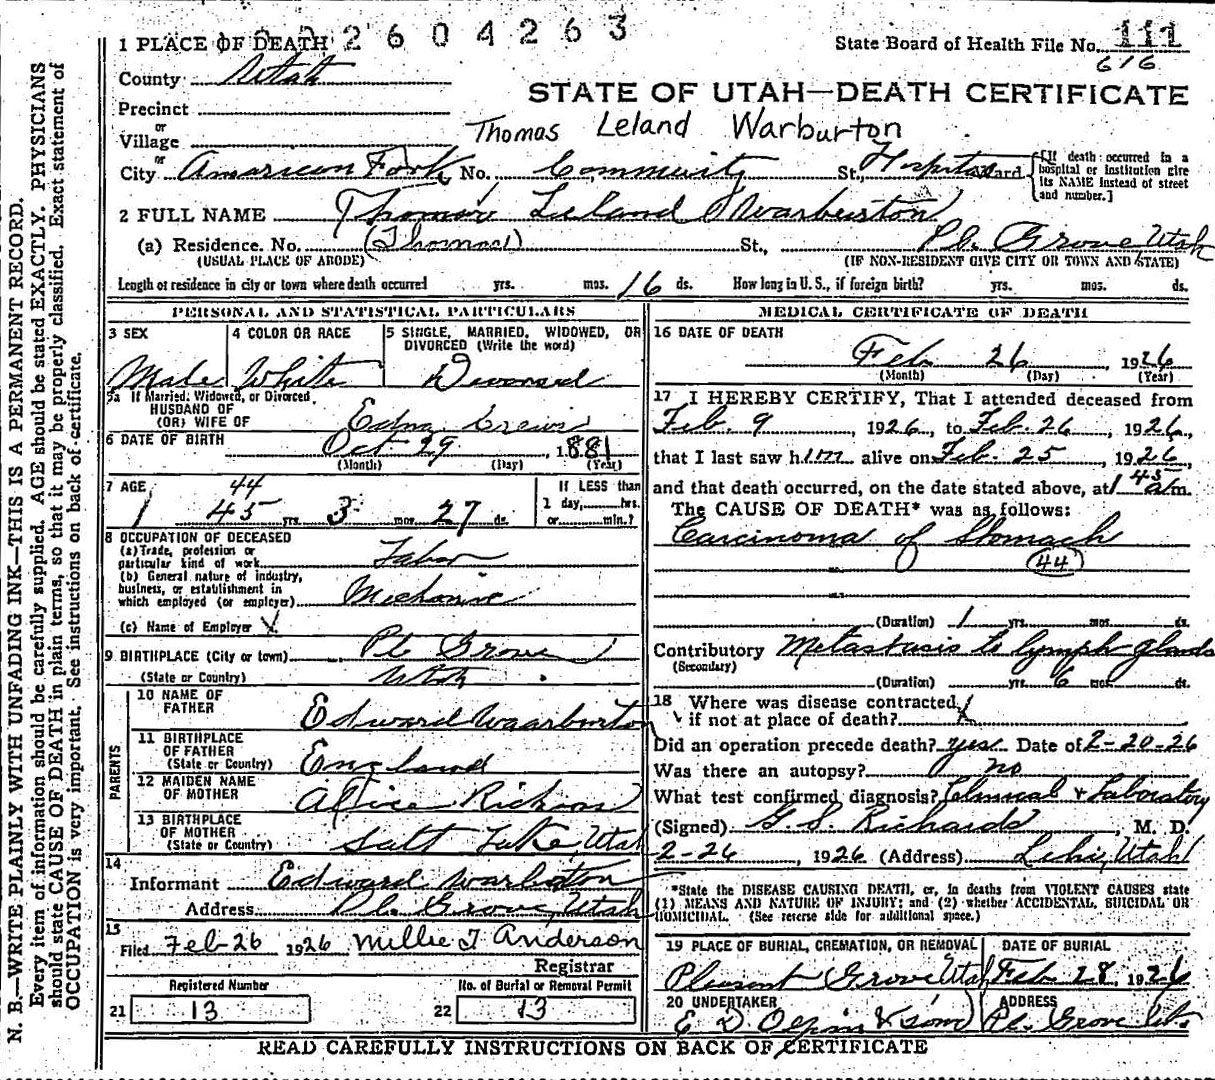 2604263
1 PLACE OF DEATH
State Board of Health File No. 111
616
County Utah
STATE OF UTAH—DEATH CERTIFICATE
Precinct
or
Village
Thomas Leland Warburton
or
City American Fork No. Community St., Hospital Ward
[If death occurred in a hospital or institution give its NAME instead of street and number.]
2 FULL NAME Thomas Leland Warburton
(a) Residence. No. (Thomas) St., Pl. Grove Utah
(USUAL PLACE OF ABODE) (IF NON-RESIDENT GIVE CITY OR TOWN AND STATE)
Length of residence in city or town where death occurred yrs. mos. 16 ds. How long in U. S., if foreign birth? yrs. mos. ds.
PERSONAL AND STATISTICAL PARTICULARS
3 SEX
Male
4 COLOR OR RACE
White
5 SINGLE, MARRIED, WIDOWED, OR DIVORCED (Write the word)
Divorced
5a If Married, Widowed, or Divorced
HUSBAND OF
(OR) WIFE OF Edna
6 DATE OF BIRTH Oct 29, 1881
(Month) (Day) (Year)
7 AGE 44
45 yrs. 3 mos. 27 ds.
If LESS than
1 day, hrs.
or min.?
8 OCCUPATION OF DECEASED
(a) Trade, profession or
particular kind of work Labor
(b) General nature of industry,
business, or establishment in
which employed (or employer) Mechanic
(c) Name of Employer X
9 BIRTHPLACE (City or town) Pl. Grove
(State or Country) Utah
PARENTS
10 NAME OF
FATHER Edward Waarburton
11 BIRTHPLACE
OF FATHER
(State or Country) England
12 MAIDEN NAME
OF MOTHER
13 BIRTHPLACE
OF MOTHER
(State or Country) Salt Lake, Utah
14
Informant Edward Warburton
Address Pl. Grove, Utah
15
Filed Feb-26 1926 Millie T Anderson
Registrar
Registered Number
21 13
No. of Burial or Removal Permit
22 13
MEDICAL CERTIFICATE OF DEATH
16 DATE OF DEATH
Feb 26, 1926
(Month) (Day) (Year)
17 I HEREBY CERTIFY, That I attended deceased from
Feb. 9, 1926, to Feb. 26, 1926,
that I last saw him alive on Feb. 25, 1926,
and that death occurred, on the date stated above, at 1 45 a.m.
The CAUSE OF DEATH* was as follows:
Carcinoma of Stomach
44
(Duration) 1 yrs. mos. ds.
Contributory Metastasis to lymph glands
(Secondary)
(Duration) yrs. 6 mos. ds.
18 Where was disease contracted
if not at place of death? X
Did an operation precede death? yes Date of 2-20-26
Was there an autopsy? no
What test confirmed diagnosis? Clinical & Laboratory
(Signed) G. S. Richards, M. D.
2-26, 1926 (Address) Lehi, Utah
*State the DISEASE CAUSING DEATH, or, in deaths from VIOLENT CAUSES state
(1) MEANS AND NATURE OF INJURY; and (2) whether ACCIDENTAL, SUICIDAL OR
HOMICIDAL. (See reverse side for additional space.)
19 PLACE OF BURIAL, CREMATION, OR REMOVAL
Pleasant Grove Utah
DATE OF BURIAL
Feb 28, 1926
20 UNDERTAKER
E D Olpin & Sons
ADDRESS
Pl. Grove Ut.
READ CAREFULLY INSTRUCTIONS ON BACK OF CERTIFICATE
N. B.—WRITE PLAINLY WITH UNFADING INK—THIS IS A PERMANENT RECORD.
Every item of information should be carefully supplied. AGE should be stated EXACTLY. PHYSICIANS
should state CAUSE OF DEATH in plain terms, so that it may be properly classified. Exact statement of
OCCUPATION is very important. See instructions on back of certificate.